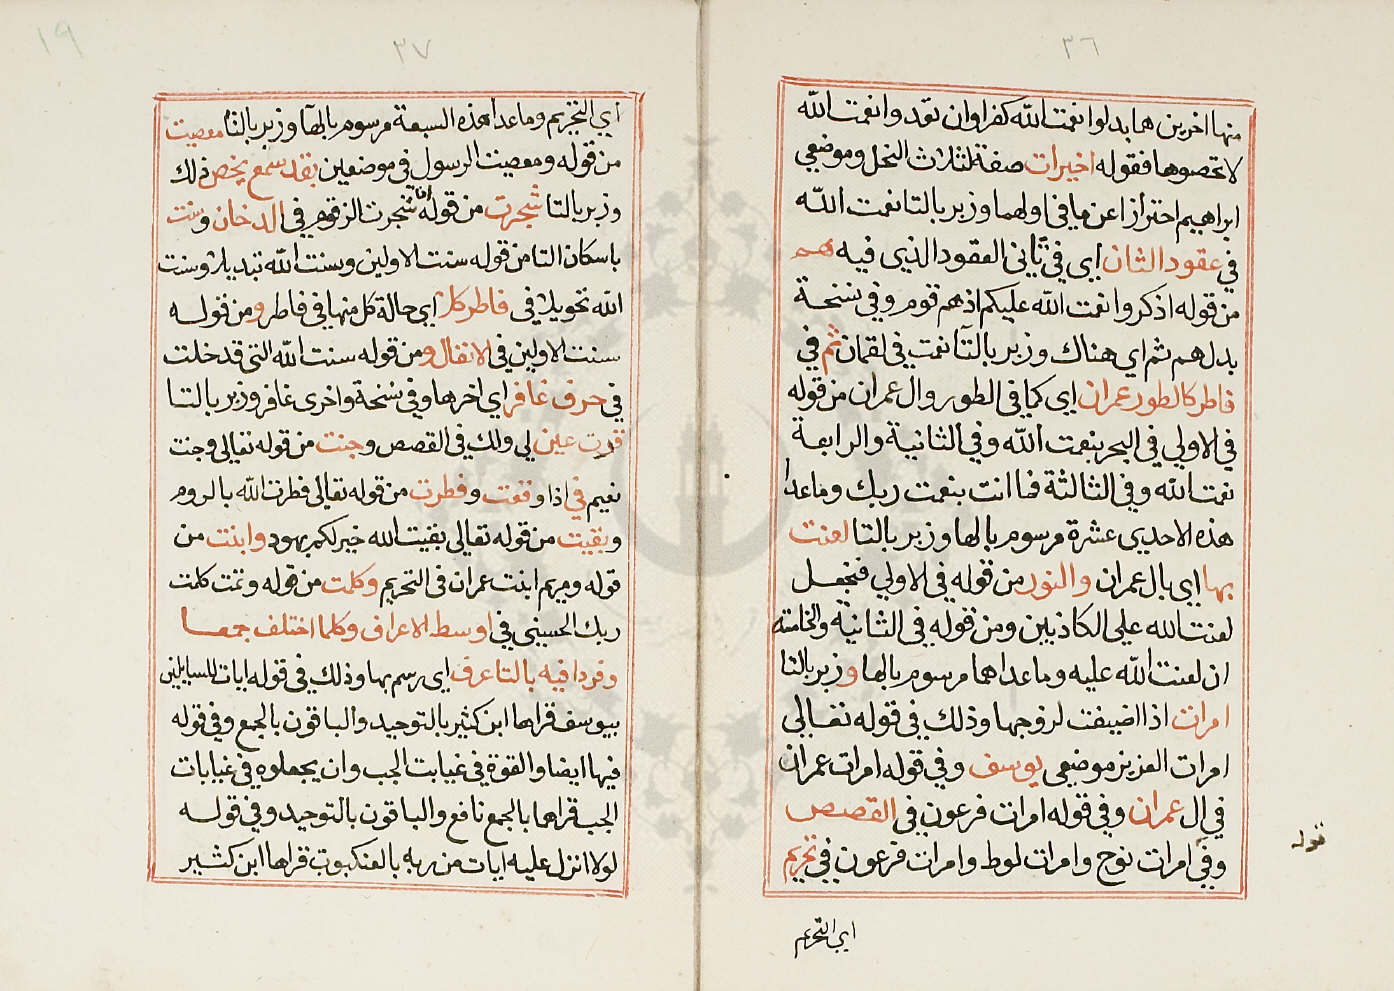 ٣٦
منها اخرين هما بدلوا نعمت الله كفرا وان تعدوا نعمت الله
لا تحصوها فقوله اخيرات صفة لثلاث النحل وموضعي
ابراهيم احترازا عن ما في اولهما وزبر بالتا نعمت الله
في عقود الثان اي في ثاني العقود الذي فيه هم
من قوله اذكروا نعمت الله عليكم اذ هم قوم وفي نسخة
بدل هم ثم اي هناك وزبر بالتا نعمت في لقمان ثم في
فاطر كالطور عمران اي كما في الطور وال عمران من قوله
في الاولي في البحر بنعمت الله وفي الثانية والرابعة
نعمت الله وفي الثالثة فما انت بنعمت ربك وما عدا
هذه الاحدي عشرة مرسوم بالها وزبر بالتا لعنت
بها اي بال عمران والنور من قوله في الاولي فنجعل
لعنت الله علي الكاذبين ومن قوله في الثانية والخامسة
ان لعنت الله عليه وما عداهما مرسوم بالها وزبر بالتا
امرات اذا اضيفت لزوجها وذلك في قوله تعالي
امرات العزيز موضعي يوسف وفي قوله امرات عمران
في ال عمران وفي قوله امرات فرعون في القصص
وفي امرات نوح وامرات لوط وامرات فرعون في تحريم
اي التحريم
قوله
٣٧
١٩
اي التحريم وما عدا هذه السبعة مرسوم بالها وزبر بالتا معصيت
من قوله ومعصيت الرسول في موضعين بقد سمع يخص ذلك
وزبر بالتا شجرت من قوله ان شجرت الزقوم في الدخان وسنت
باسكان التا من قوله سنت الاولين وبسنت الله تبديلا وسنت
الله تحويلا في فاطر كلا اي حالة كل منها في فاطر ومن قوله
سنت الاولين في الانفال ومن قوله سنت الله التي قد خلت
في حرف غافر اي اخرها وفي نسخة واخري غافر وزبر بالتا
قرت عين لي ولك في القصص وجنت من قوله تعالي وجنت
نعيم في اذا وقعت وفطرت من قوله تعالي فطرت الله بالروم
وبقيت من قوله تعالي بقيت الله خير لكم بهود وابنت من
قوله ومريم ابنت عمران في التحريم وكلمت من قوله وتمت كلمت
ربك الحسني في اوسط الاعراف وكلما اختلف جمعا
وفردا فيه بالتا عرف اي رسم بها وذلك في قوله ايات للسايلين
بيوسف قراها ابن كثير بالتوحيد والباقون بالجمع وفي قوله
فيها ايضا والقوة في غيابت الجب وان يجعلوه في غيابات
الجب قراهما بالجمع نافع والباقون بالتوحيد وفي قوله
لولا انزل عليه ايات من ربه بالعنكبوت قراها ابن كثير